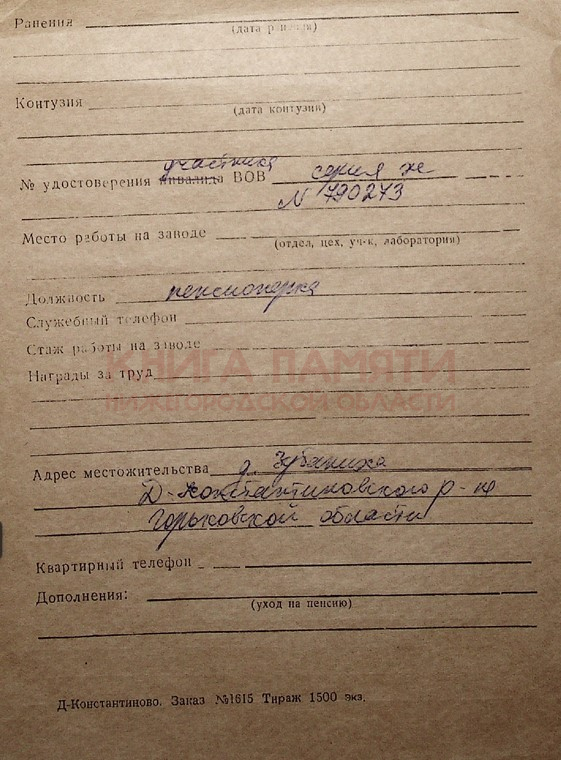 Ранения
(дата ранения)
Контузия
(дата контузии)
участника
№ удостоверения инвалида ВОВ серия ж
N 790273
Место работы на заводе
(отдел, цех, уч-к, лаборатория)
Должность пенсионерка
Служебный телефон
Стаж работы на заводе
КНИГА ПАМЯТИ
Награды за труд
НИЖЕГОРОДСКОЙ ОБЛАСТИ
Адрес местожительства д.
Д-Константиновского р-на
Горьковской области
Квартирный телефон
Дополнения:
(уход на пенсию)
Д-Константиново. Заказ №1615 Тираж 1500 экз.